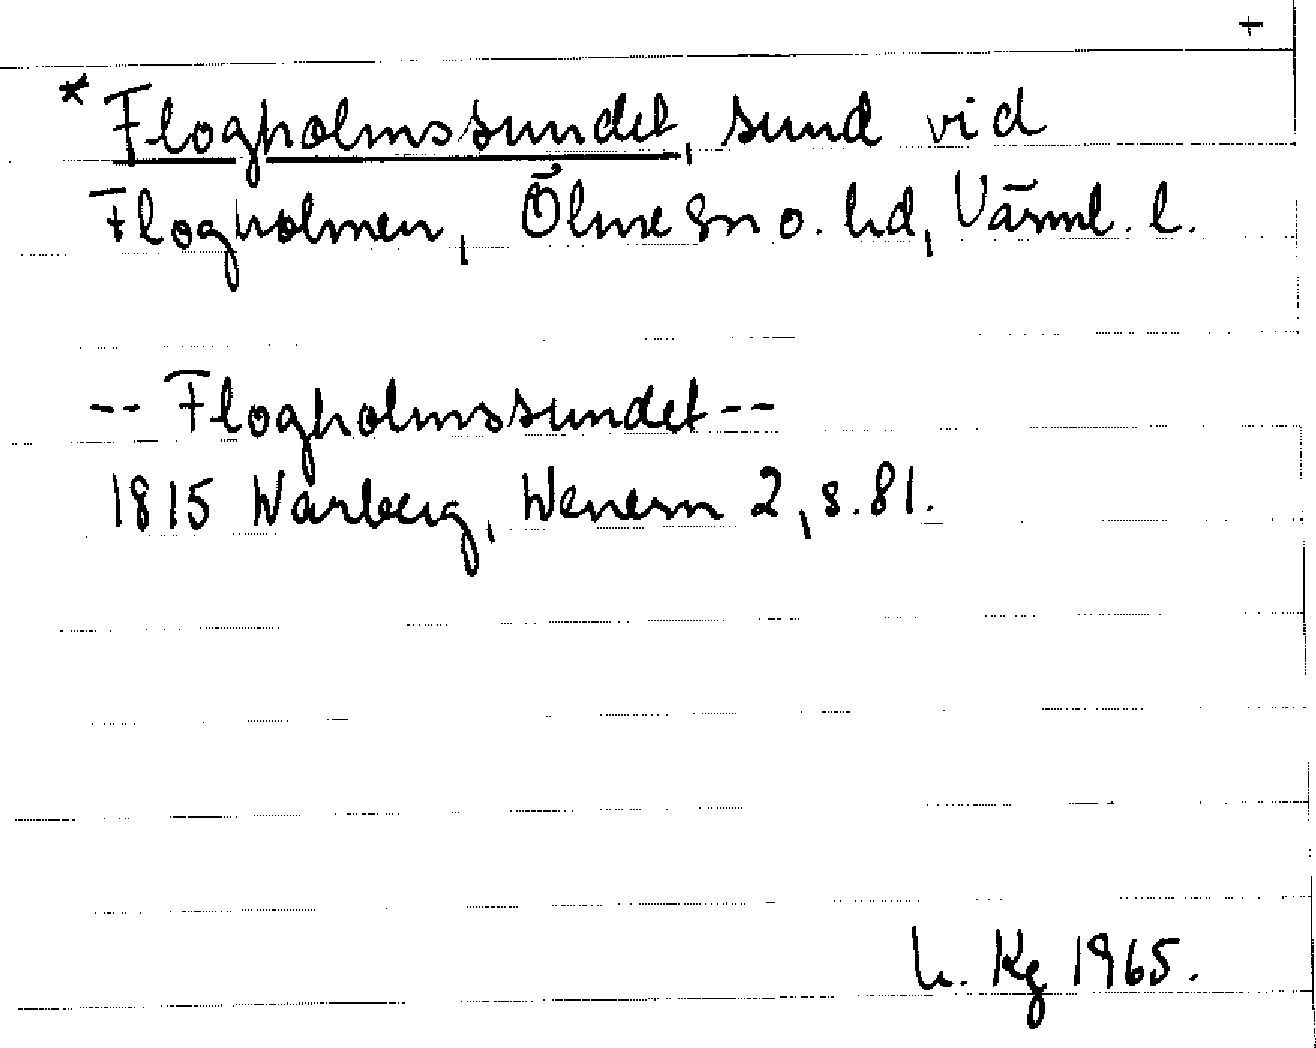 +
* Flogholmssundet, sund vid
Flogholmen, Ölme sn o. hd, Värml. l.
-- Flogholmssundet --
1815 Warberg, Wenern 2, s. 81.
L. Kg 1965.